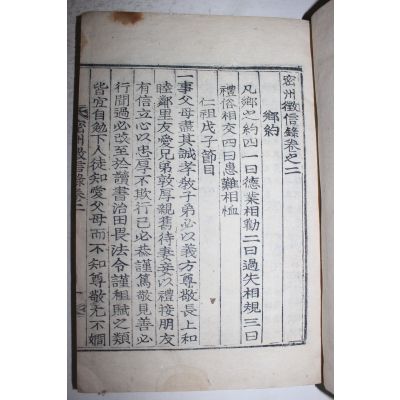 密州徵信錄卷之二
鄕約
凡鄕之約四一曰德業相勸二曰過失相規三曰
禮俗相交四曰患難相恤
仁祖戊子節目
一事父母盡其誠孝敎子弟必以義方尊敬長上和
睦鄰里友愛兄弟敦厚親舊待妻妾以禮接朋友
有信立心以忠厚不欺行己必恭謹篤敬見善必
行聞過必改至於讀書治田畏法令謹租賦之類
皆宜自勉下人徒知愛父母而不知尊敬尤不嫺
密州徵信錄卷二 一